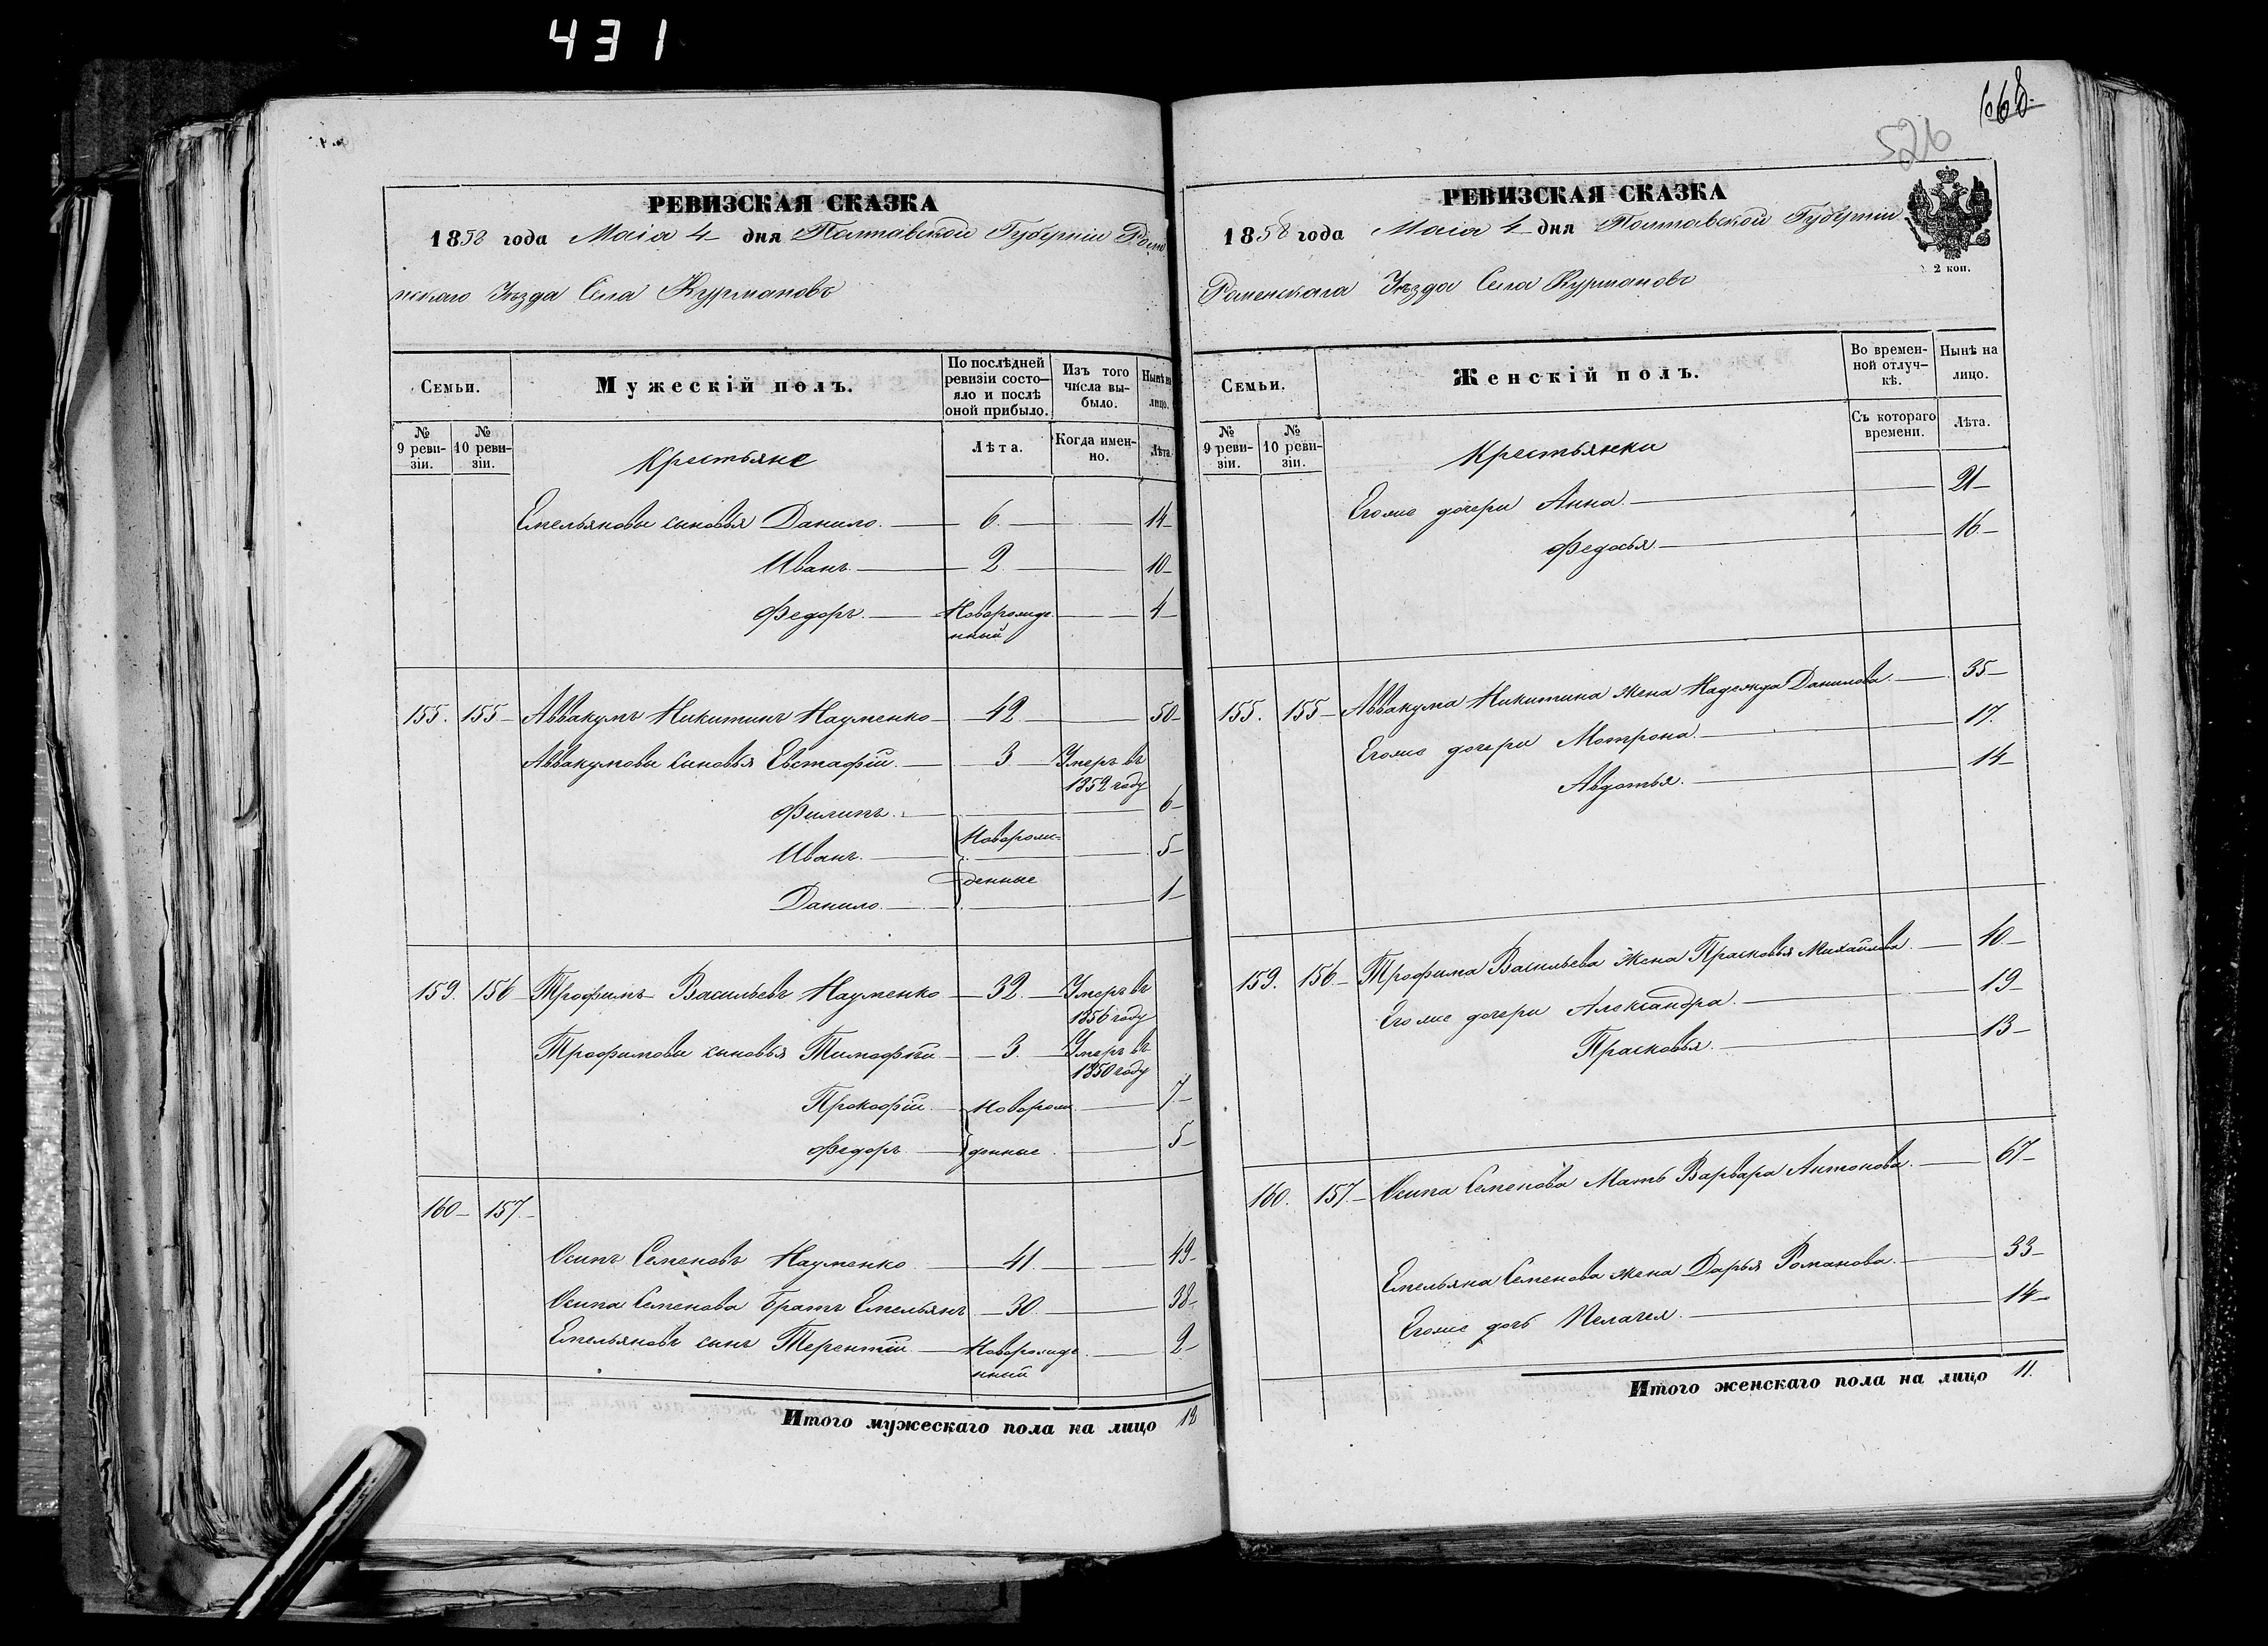 431
668
526
РЕВИЗСКАЯ СКАЗКА
1858 года Маія 4 дня Полтавской Губерніи Роме
нскаго Уѣзда Села Курмановъ
Семьи.
Мужескій полъ.
По послѣдней ревизіи состо-яло и послѣ оной прибыло.
Изъ того числа вы-было.
Нынѣ на лицо.
№ 9 реви-зіи.
№ 10 реви-зіи.
Крестьяне
Лѣта.
Когда имен-но.
Лѣта
Емельяновы сыновья Данило 6 14
Иванъ 2 10
Федоръ Новорожде 4
нный
155. 155 Аввакумъ Никитинъ Науменко 42 50
Аввакумовы сыновья Евстафій 3 Умеръ въ
1852 году
Филипъ 6
Иванъ Новорож= 5
денные
Данило 1
159. 156 Трофимъ Васильевъ Науменко 32 Умеръ въ
1856 году
Трофимовы сыновья Тимофѣй 3 Умеръ въ
1850 году
Прокофій Новорож 7
Федоръ денные 5
160 157
Осипъ Семеновъ Науменко 41 49
Осипа Семенова братъ Емельянъ 30 38
Емельяновъ сынъ Терентій Новорожде 2
нный
Итого мужескаго пола на лицо 12
РЕВИЗСКАЯ СКАЗКА
1858 года Маія 4 дня Полтавской Губерніи
2 коп.
Роменскаго Уѣзда Села Курмановъ
Семьи.
Женскій полъ.
Во времен-ной отлуч-кѣ.
Нынѣ на лицо.
№ 9 реви-зіи.
№ 10 реви-зіи.
Крестьянки
Съ котораго времени.
Лѣта.
Егоже дочери Анна 21
Федосья 16
155. 155 Аввакума Никитина жена Надежда Данилова 35
Егоже дочери Мотрона 17.
Авдотья 14
159. 156 Трофима Васильева жена Прасковья Михайлова 40
Егоже дочери Александра 19
Прасковья 13
160. 157. Осипа Семенова Мать Варвара Антонова 67
Емельяна Семенова жена Дарья Романова 33
Егоже дочь Пелагея 14
Итого женскаго пола на лицо 11.